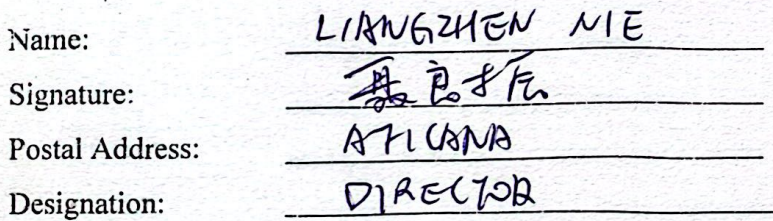 Name: LIANGZHEN NIE
Signature: 聂良振
Postal Address:
Designation: DIRECTOR